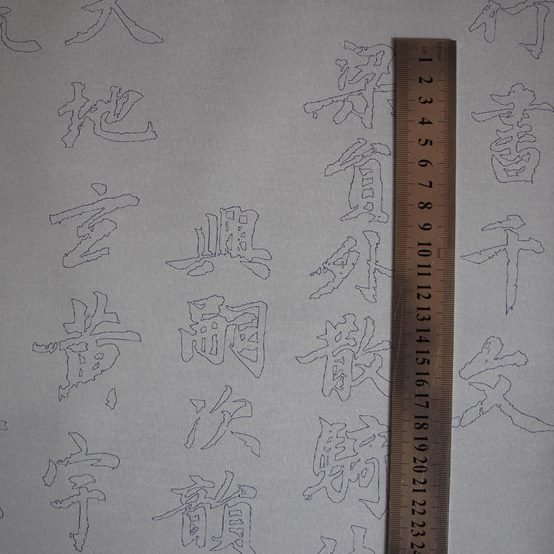 行書千文
1 2 3 4 5 6 7 8 9 10 11 12 13 14 15 16 17 18 19 20 21 22 23
梁員外散騎
興嗣次韻
天地玄黃宇